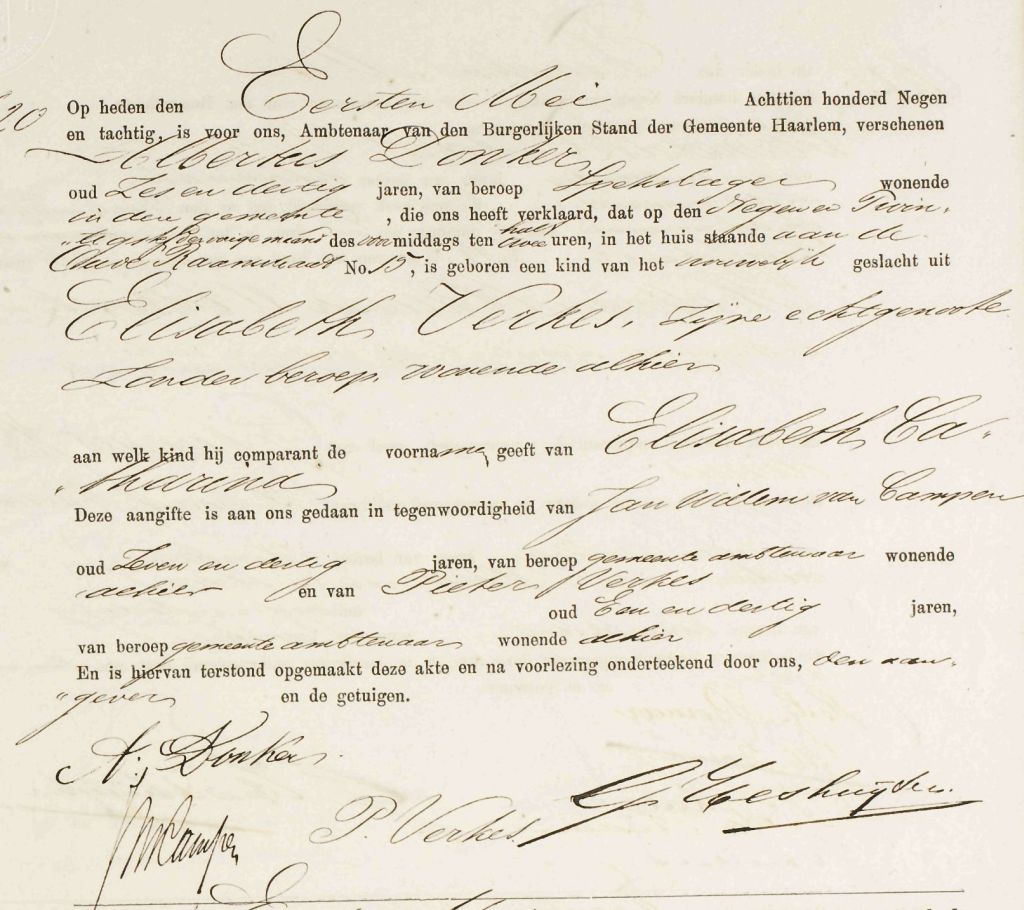 20
Op heden den Eersten Mei Achttien honderd Negen
en tachtig, is voor ons, Ambtenaar van den Burgerlijken Stand der Gemeente Haarlem, verschenen
Albertus Donker,
oud Zes en dertig jaren, van beroep Spekslager wonende
in deze gemeente, die ons heeft verklaard, dat op den Negen en Twin-
"tigsten der vorige maand des voormiddags ten half twee uren, in het huis staande aan de
Oude Raamstraat No. 15, is geboren een kind van het vrouwelijk geslacht uit
Elisabeth Verkes, zijne echtgenoote
zonder beroep, wonende alhier
aan welk kind hij comparant de voorname geeft van Elisabeth Ca-
"tharina
Deze aangifte is aan ons gedaan in tegenwoordigheid van Jan Willem van Campen
oud Zeven en dertig jaren, van beroep gemeente ambtenaar wonende
alhier en van Pieter Verkes
oud Een en dertig jaren,
van beroep gemeente ambtenaar wonende alhier
En is hiervan terstond opgemaakt deze akte en na voorlezing onderteekend door ons, den aan-
"gever en de getuigen.
A. Donker.
JWvCampen P. Verkes.